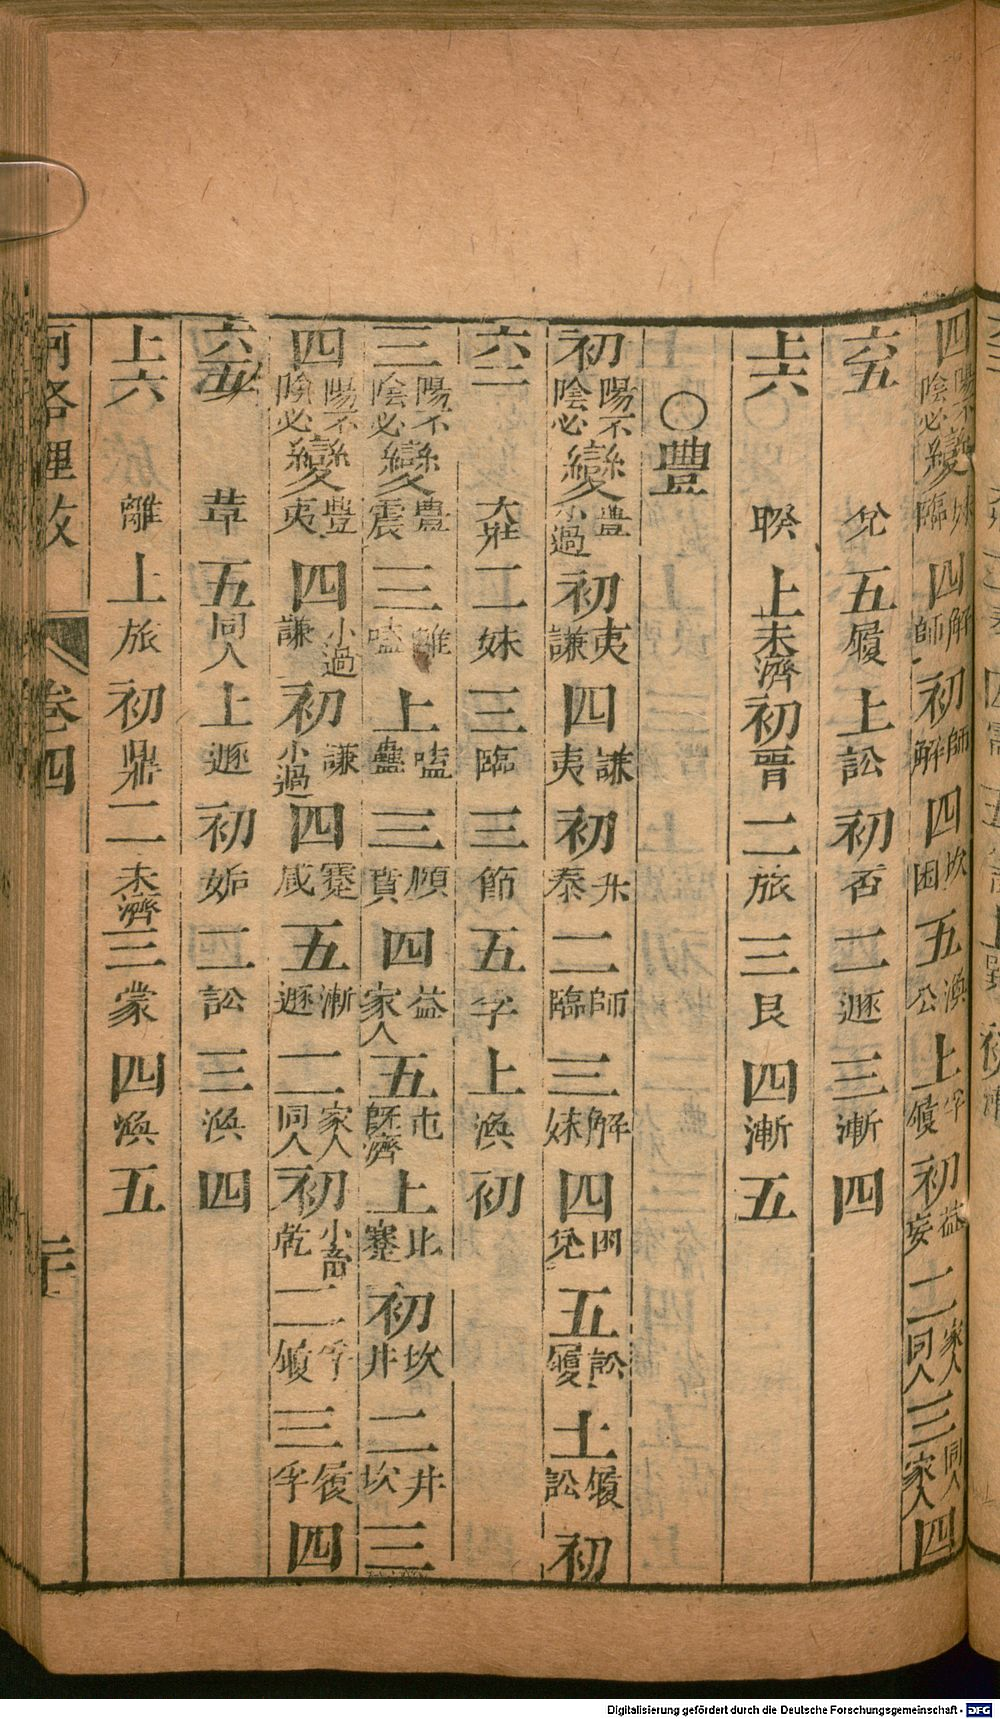 四陽不陰必變妹臨四解師初師解四坎困五渙公上孚履初益妄二家人同人三同人家人四
六五兌五履上訟初否二遯三漸四
上六暌上未濟初晉二旅三艮四漸五
○豐
初陽不陰必變豊小過初夷謙四謙夷初升泰二師臨三解妹四困兌五訟履上履訟初
六二大壯二妹三臨三節五孚上渙初
三陽不陰必變豊震三離嗑上嗑蠱三頤賁四益家人五屯旣濟上比蹇初坎井二井坎三
四陽不陰必變豐夷四小過謙初謙小過四蹇咸五漸遯二家人同人初小畜乾二孚履三履孚四
六五革五同人上遯初姤二訟三渙四
上六離上旅初鼎二未濟三蒙四渙五
河洛理數 卷四 二十
Digitalisierung gefördert durch die Deutsche Forschungsgemeinschaft - DFG